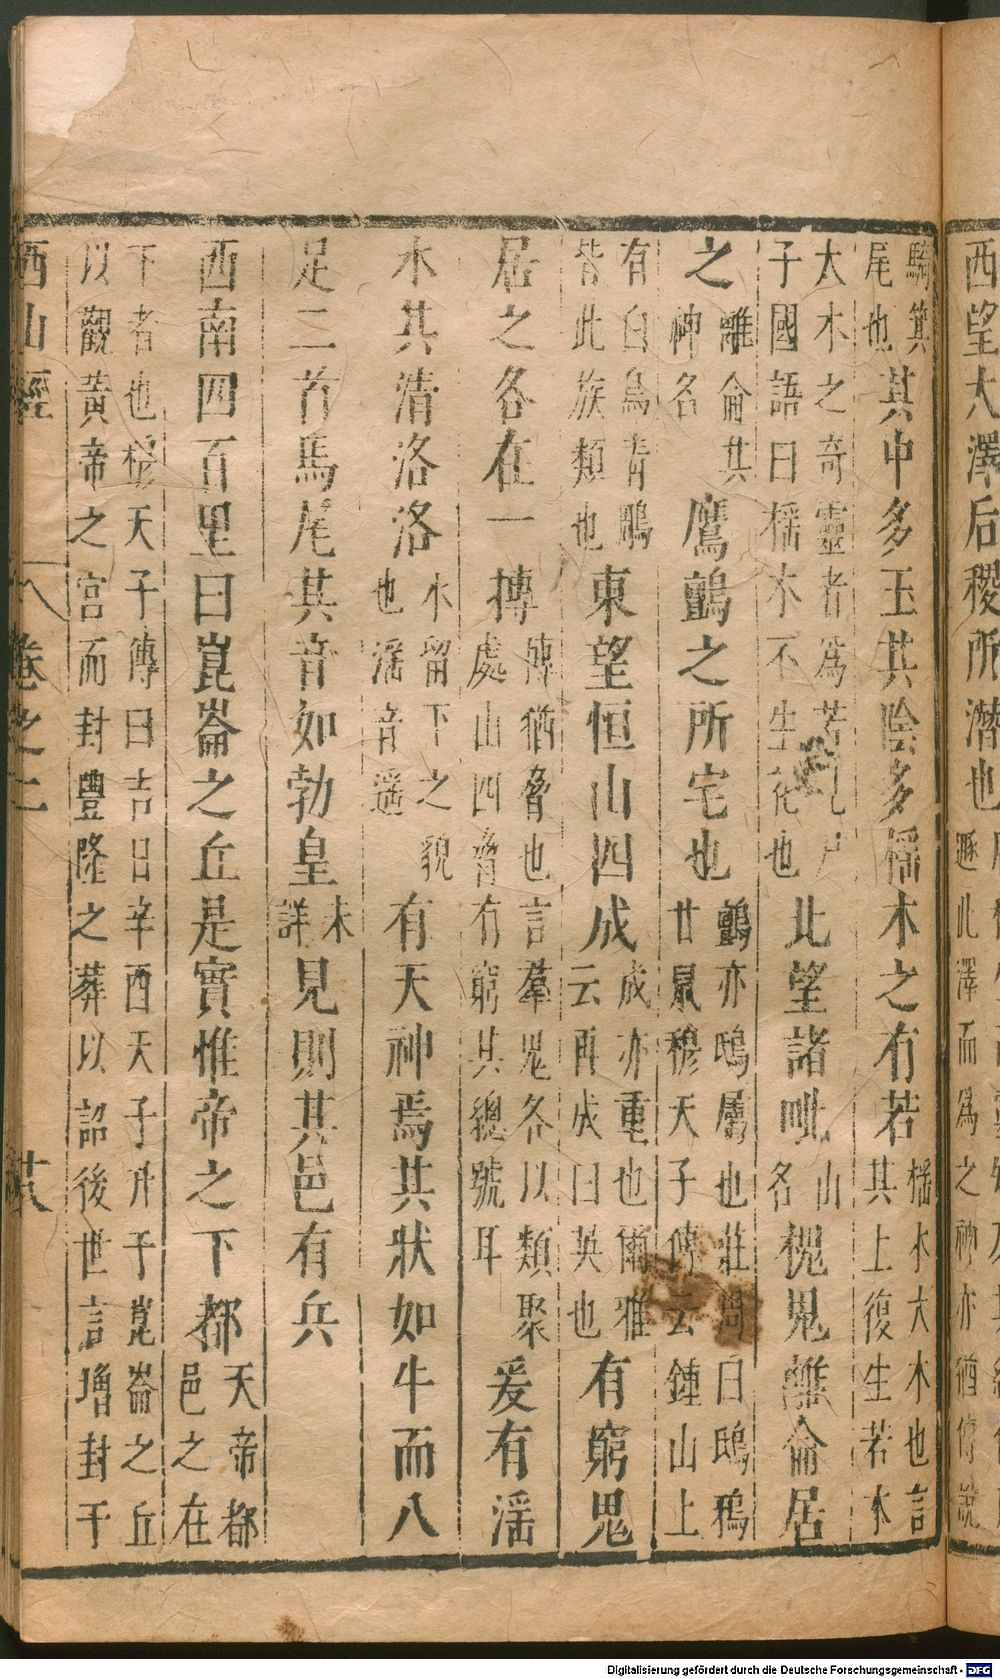 西望大澤后稷所潛也遯此澤而爲之神亦猶傅說
騎箕尾也其中多玉其陰多榣木之有若榣木大木也言其上復生若木
大木之奇靈者爲若見尸子國語曰榣木不生花也北望諸毗山名槐鬼離侖居
之離侖其神名鷹鸇之所宅也鸇亦鴟屬也莊周曰鴟鴉甘鼠穆天子傳云鍾山上
有白鳥青鵰皆此族類也東望恒山四成成亦重也爾雅云再成曰英也有窮鬼
居之各在一搏搏猶脅也言羣鬼各以類聚處山四脅有窮其總號耳爰有滛
水其清洛洛水留下之貌也滛音遥有天神焉其狀如牛而八
足二首馬尾其音如勃皇未詳見則其邑有兵
西南四百里曰崑崙之丘是實惟帝之下都天帝都邑之在
下者也穆天子傳曰吉日辛酉天子升于崑崙之丘以觀黃帝之宮而封豐隆之葬以詔後世言增封于
西山經 卷之二 廿八
Digitalisierung gefördert durch die Deutsche Forschungsgemeinschaft - DFG